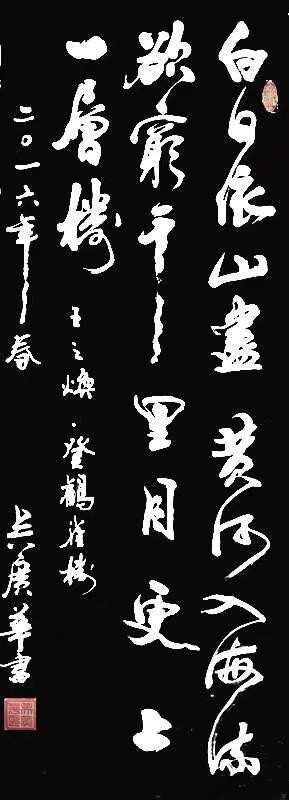 白日依山盡黄河入海流
欲窮千里目更上
一層樓 王之煥·登鶴雀樓
二〇一六年春 吴廣華書